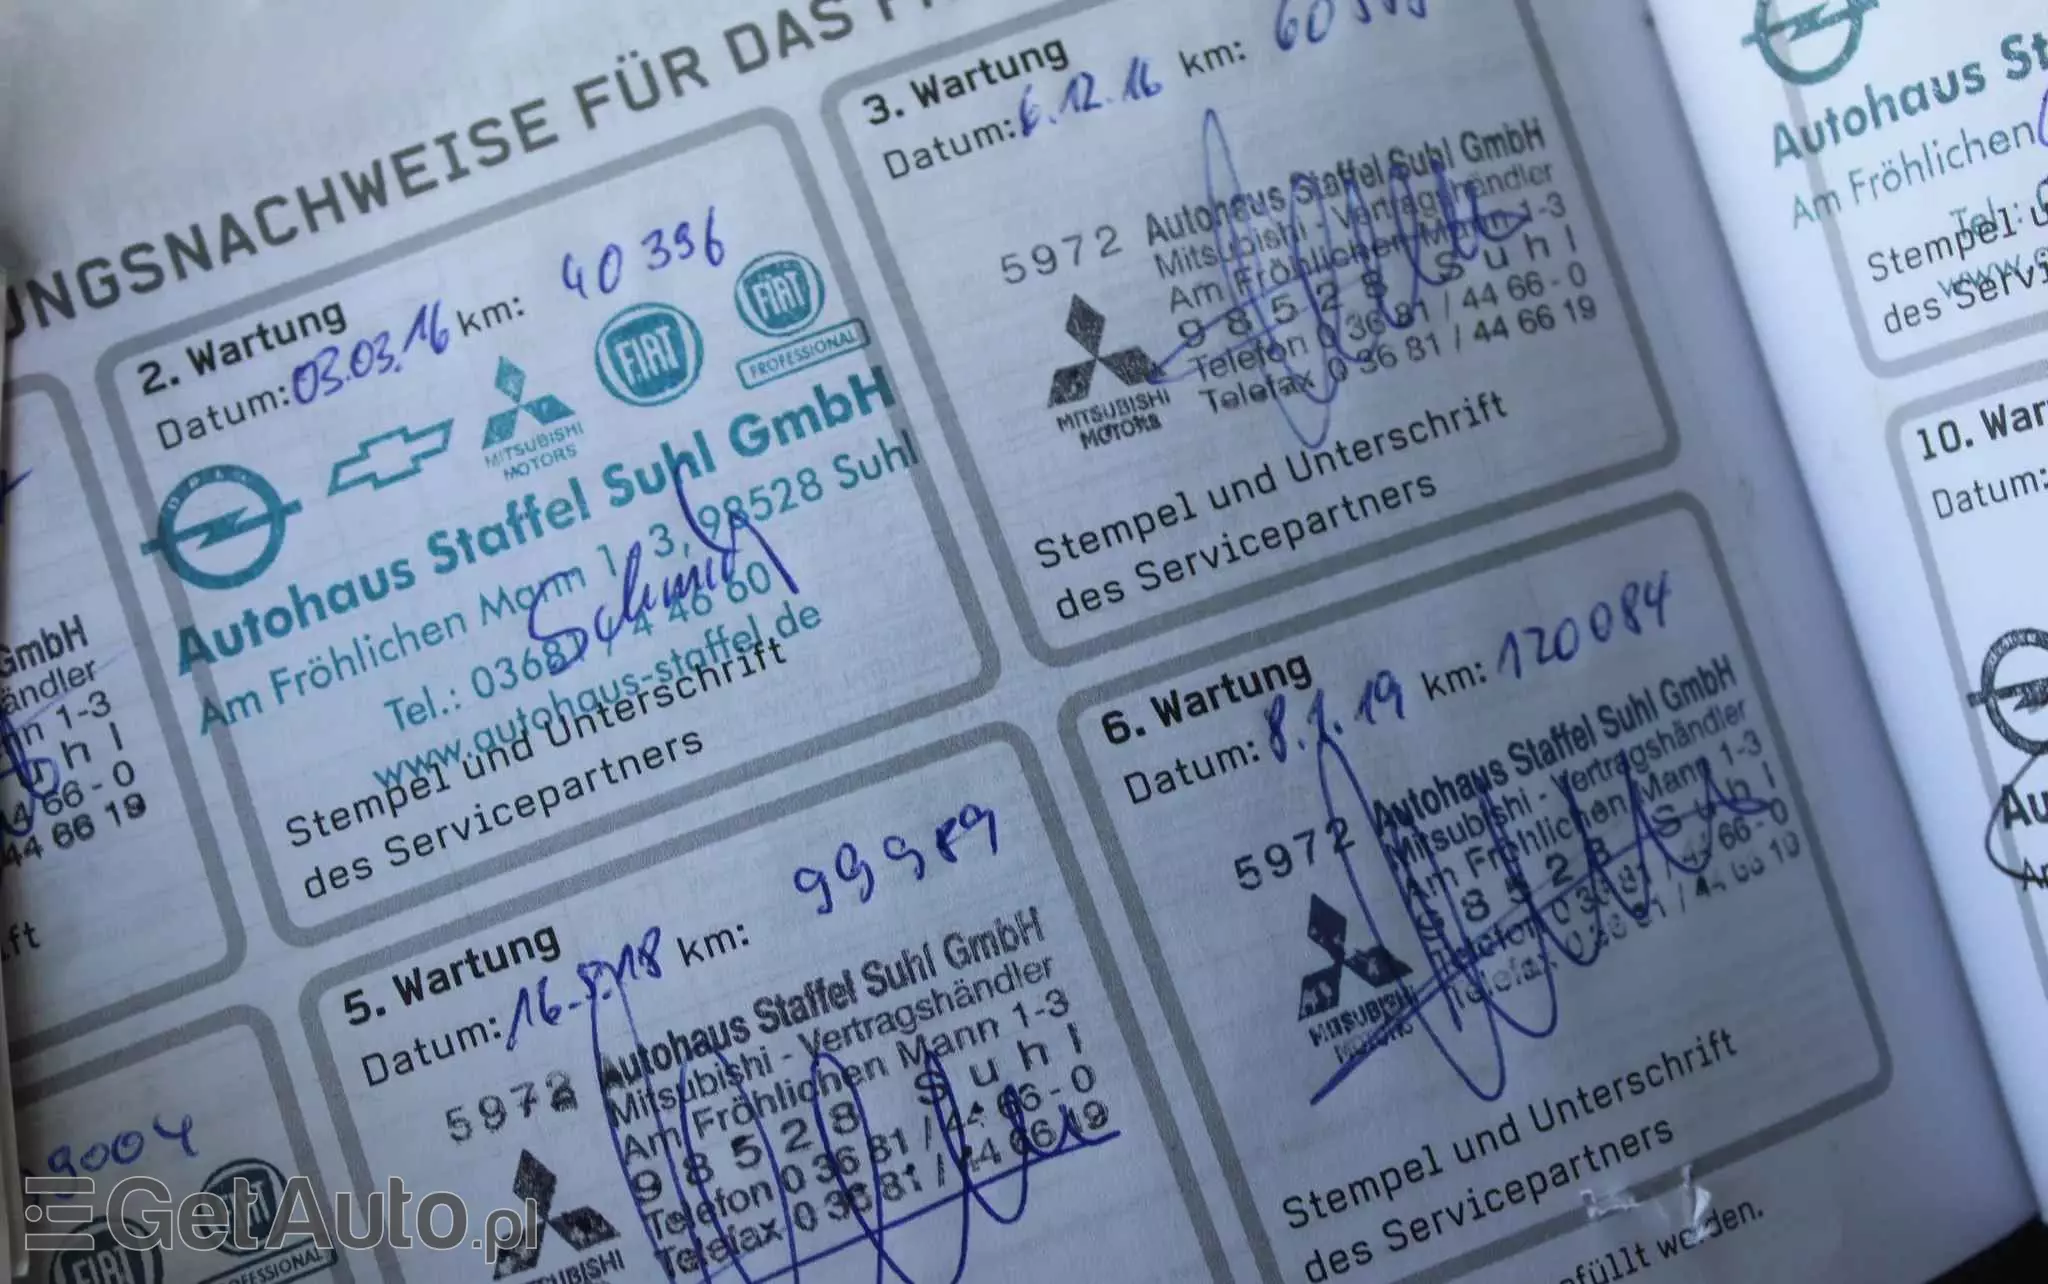 UNGSNACHWEISE FÜR DAS
2. Wartung
Datum: 03.03.16 km: 40 396
OPEL
MITSUBISHI
MOTORS
FIAT
FIAT
PROFESSIONAL
Autohaus Staffel Suhl GmbH
Am Fröhlichen Mann 1-3, 98528 Suhl
Tel.: 03681/4 46 60
www.autohaus-staffel.de
Stempel und Unterschrift
des Servicepartners
3. Wartung
Datum: 6.12.16 km:
5972
Autohaus Staffel Suhl GmbH
Mitsubishi - Vertragshändler
Am Fröhlichen Mann 1-3
98528 Suhl
Telefon 0 36 81 / 44 66 - 0
Telefax 0 36 81 / 44 66 19
MITSUBISHI
MOTORS
Stempel und Unterschrift
des Servicepartners
GmbH
ändler
1-3
66 - 0
44 66 19
9004
FIAT
FIAT
5. Wartung
Datum: 16. .18 km: 99989
5972
Autohaus Staffel Suhl GmbH
Mitsubishi - Vertragshändler
Am Fröhlichen Mann 1-3
98528 Suhl
Telefon 0 36 81 / 44 66 - 0
Telefax 0 36 81 / 44 66 19
MITSUBISHI
6. Wartung
Datum: 8.1.19 km: 120084
5972
Autohaus Staffel Suhl GmbH
Mitsubishi - Vertragshändler
Am Fröhlichen Mann 1-3
98528 Suhl
Telefon 0 36 81 / 44 66 - 0
Telefax 0 36 81 / 44 66 19
MITSUBISHI
MOTORS
Stempel und Unterschrift
des Servicepartners
Autohaus St
Am Fröhlichen
Tel.:
Stempel u
www.
des Servi
10. War
Datum:
Au
GetAuto.pl